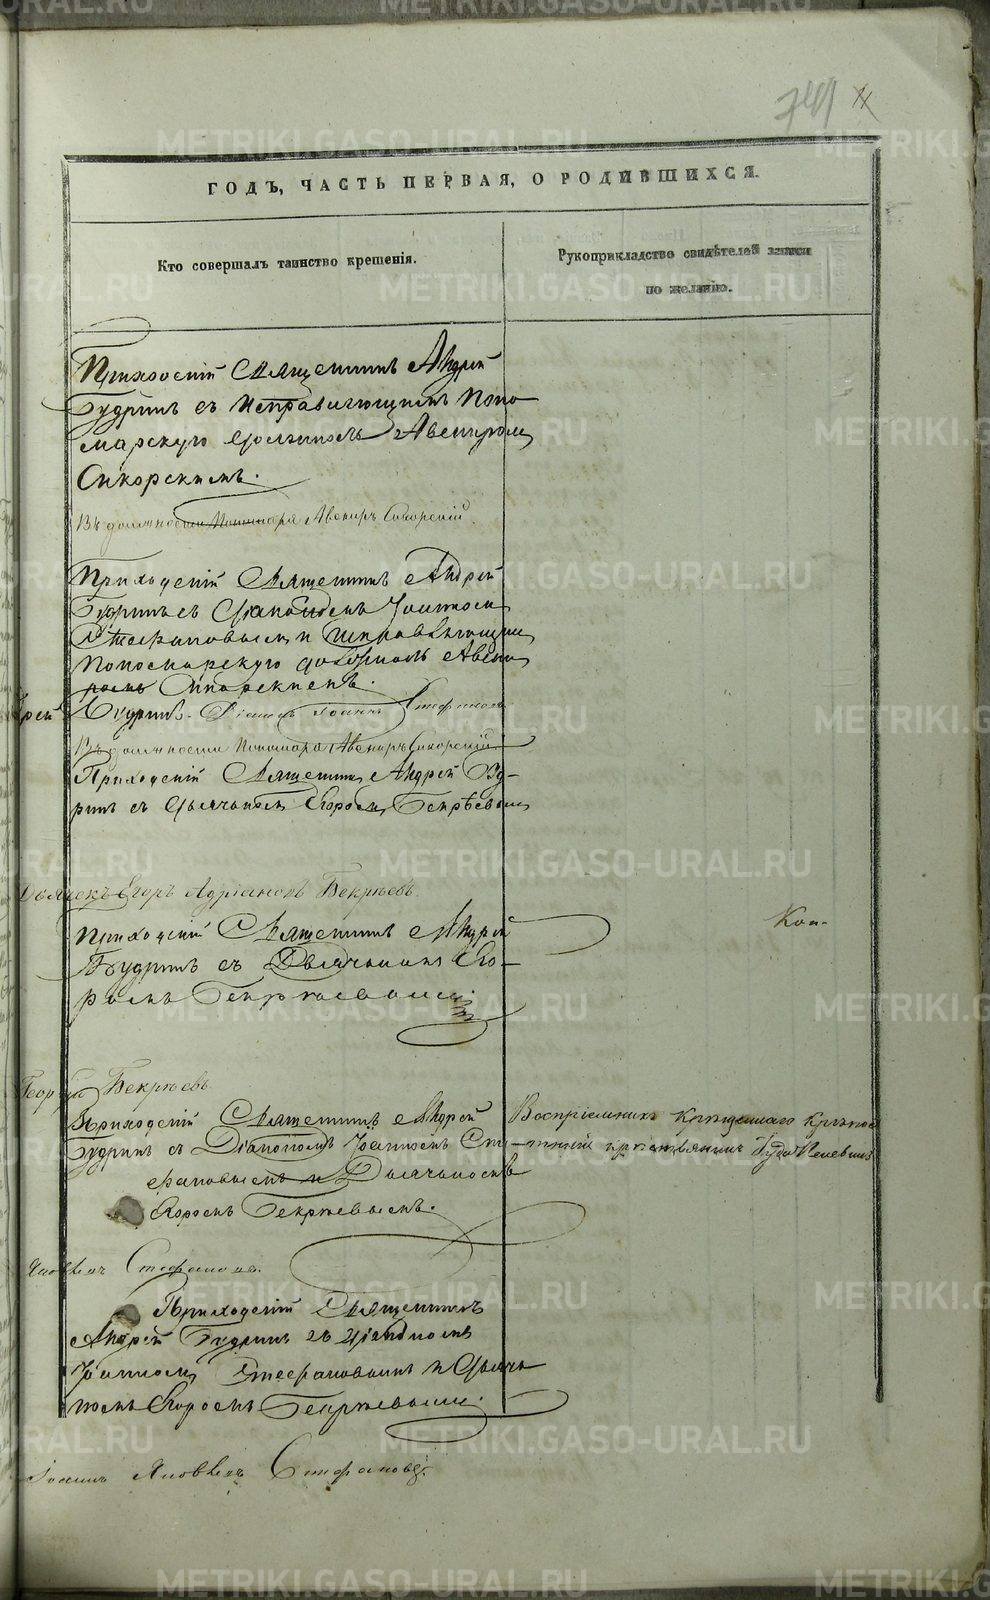 741
ГОДЪ, ЧАСТЬ ПЕРВАЯ, О РОДИВШИХСЯ.
Кто совершалъ таинство крещенія.
Рукоприкладство свидѣтелей записи
по желанію.
Приходскій Священникъ Андрей
Будринъ съ Исправляющимъ Поно
марскую должность Авениромъ
Сикорскимъ.
Въ должности Пономаря Авениръ Сикорскій
Приходскій Священникъ Андрей
Будринъ съ Діакономъ Іоанномъ
Стефановымъ и Исправляющимъ
Пономарскую должность Авени
ромъ Сикорскимъ.
Будринъ. Діаконъ Іоаннъ Стефановъ
Въ должности Пономаря Авениръ Сикорскій
Приходскій Священникъ Андрей Бу-
ринъ съ Дьячкомъ Егоромъ Бекрѣевымъ
Дьячекъ Егоръ Адріановъ Бекрѣевъ.
Приходскій Священникъ Андрей
Будринъ съ Дьячкомъ Его-
ромъ Бекрѣевымъ
Георгій Бекрѣевъ
Приходскій Священникъ Андрей
Будринъ съ Діакономъ Іоанномъ Сте-
фановымъ и Дьячкомъ
Егоромъ Бекрѣевымъ.
Воспріемникъ
крестьянинъ
Яковлевъ Стефановъ.
Приходскій Священникъ
Андрей Будринъ съ Діакономъ
Іоанномъ Стефановымъ и Дьяч
комъ Егоромъ Бекрѣевымъ.
Іоаннъ Яковлевъ Стефановъ.
METRIKI.GASO-URAL.RU